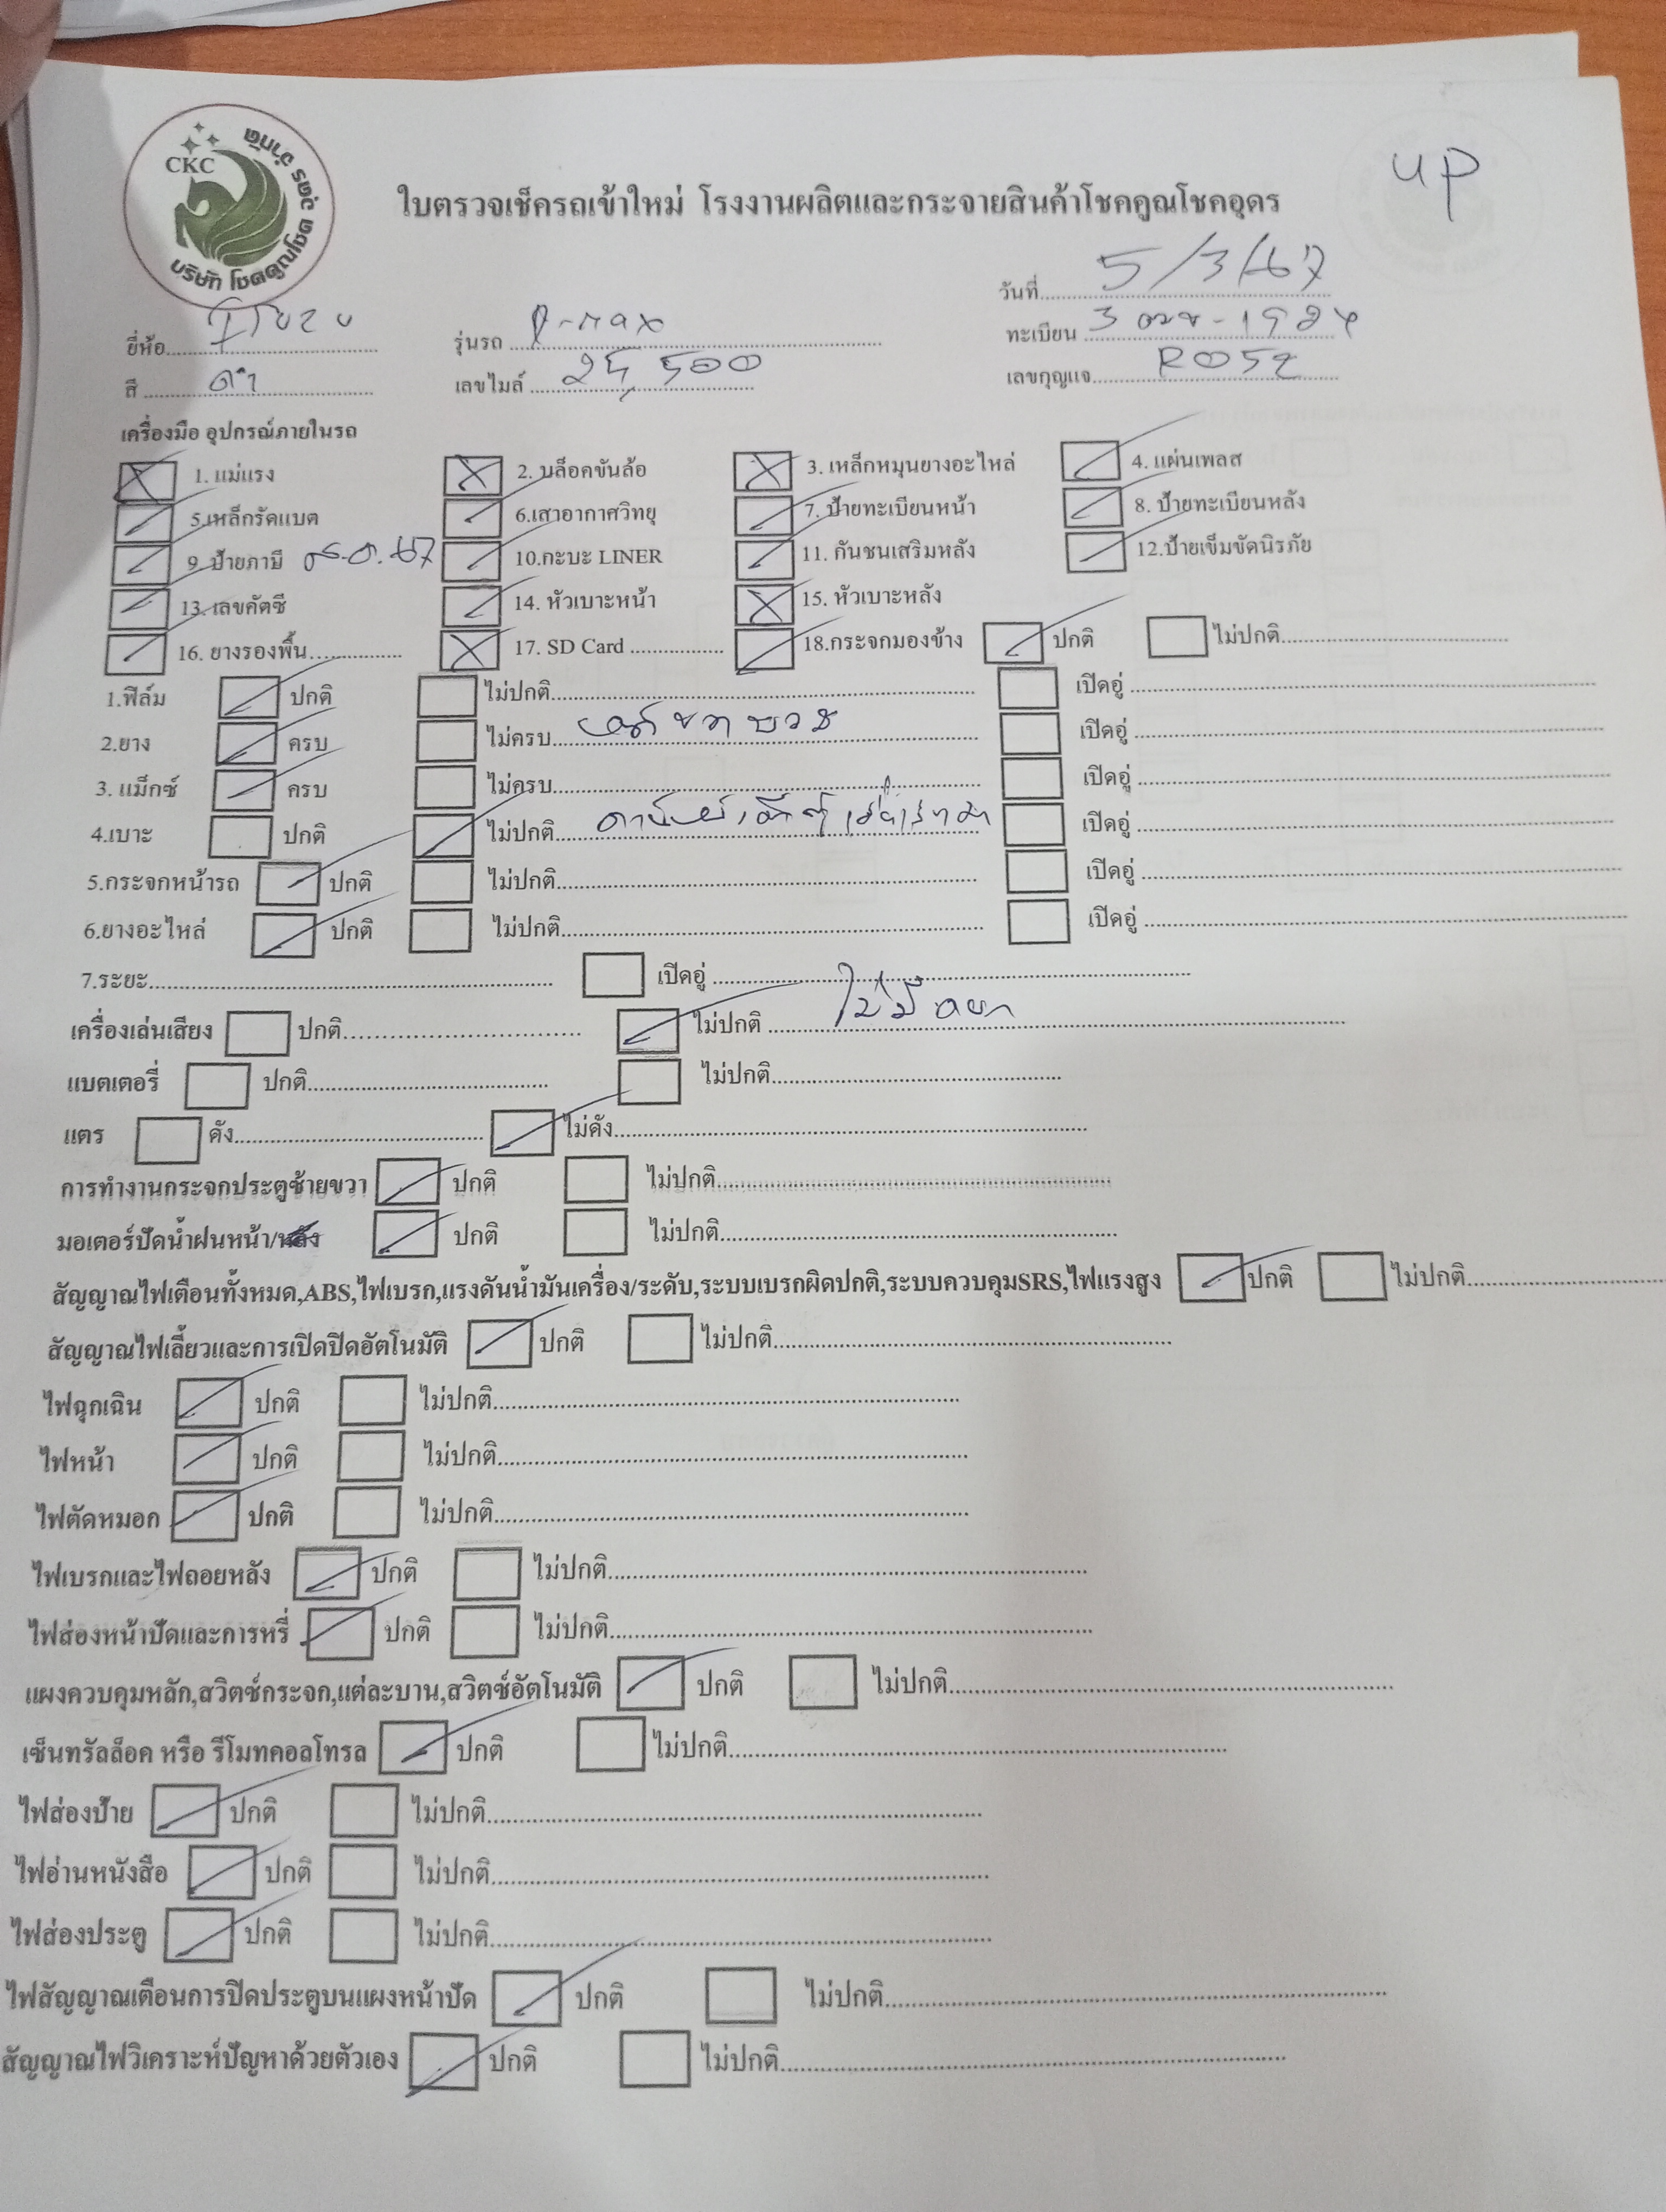 CKC
บริษัท โชคคูณโชค ตลอด จำกัด
up
ใบตรวจเช็ครถเข้าใหม่ โรงงานผลิตและกระจายสินค้าโชคคูณโชคอุดร
วันที่ 5/3/67
ยี่ห้อ Isuzu รุ่นรถ D-max ทะเบียน
สี ดำ เลขไมล์ 25,500 เลขกุญแจ
เครื่องมือ อุปกรณ์ภายในรถ
1. แม่แรง 2. บล็อคขันล้อ 3. เหล็กหมุนยางอะไหล่ 4. แผ่นเพลส
5.เหล็กรัดแบต 6.เสาอากาศวิทยุ 7. ป้ายทะเบียนหน้า 8. ป้ายทะเบียนหลัง
9. ป้ายภาษี 10.กะบะ LINER 11. กันชนเสริมหลัง 12.ป้ายเข็มขัดนิรภัย
13. เลขคัตซี 14. หัวเบาะหน้า 15. หัวเบาะหลัง
16. ยางรองพื้น 17. SD Card 18.กระจกมองข้าง ปกติ ไม่ปกติ
1.ฟิล์ม ปกติ ไม่ปกติ เปิดอู่
2.ยาง ครบ ไม่ครบ เปิดอู่
3. แม็กซ์ ครบ ไม่ครบ เปิดอู่
4.เบาะ ปกติ ไม่ปกติ เปิดอู่
5.กระจกหน้ารถ ปกติ ไม่ปกติ เปิดอู่
6.ยางอะไหล่ ปกติ ไม่ปกติ เปิดอู่
7.ระยะ เปิดอู่
เครื่องเล่นเสียง ปกติ ไม่ปกติ ไม่มี
แบตเตอรี่ ปกติ ไม่ปกติ
แตร ดัง ไม่ดัง
การทำงานกระจกประตูซ้ายขวา ปกติ ไม่ปกติ
มอเตอร์ปัดน้ำฝนหน้า/หลัง ปกติ ไม่ปกติ
สัญญาณไฟเตือนทั้งหมด,ABS,ไฟเบรก,แรงดันน้ำมันเครื่อง/ระดับ,ระบบเบรกผิดปกติ,ระบบควบคุมSRS,ไฟแรงสูง ปกติ ไม่ปกติ
สัญญาณไฟเลี้ยวและการเปิดปิดอัตโนมัติ ปกติ ไม่ปกติ
ไฟฉุกเฉิน ปกติ ไม่ปกติ
ไฟหน้า ปกติ ไม่ปกติ
ไฟตัดหมอก ปกติ ไม่ปกติ
ไฟเบรกและไฟถอยหลัง ปกติ ไม่ปกติ
ไฟส่องหน้าปัดและการหรี่ ปกติ ไม่ปกติ
แผงควบคุมหลัก,สวิตช์กระจก,แต่ละบาน,สวิตซ์อัตโนมัติ ปกติ ไม่ปกติ
เซ็นทรัลล็อค หรือ รีโมทคอลโทรล ปกติ ไม่ปกติ
ไฟส่องป้าย ปกติ ไม่ปกติ
ไฟอ่านหนังสือ ปกติ ไม่ปกติ
ไฟส่องประตู ปกติ ไม่ปกติ
ไฟสัญญาณเตือนการปิดประตูบนแผงหน้าปัด ปกติ ไม่ปกติ
สัญญาณไฟวิเคราะห์ปัญหาด้วยตัวเอง ปกติ ไม่ปกติ